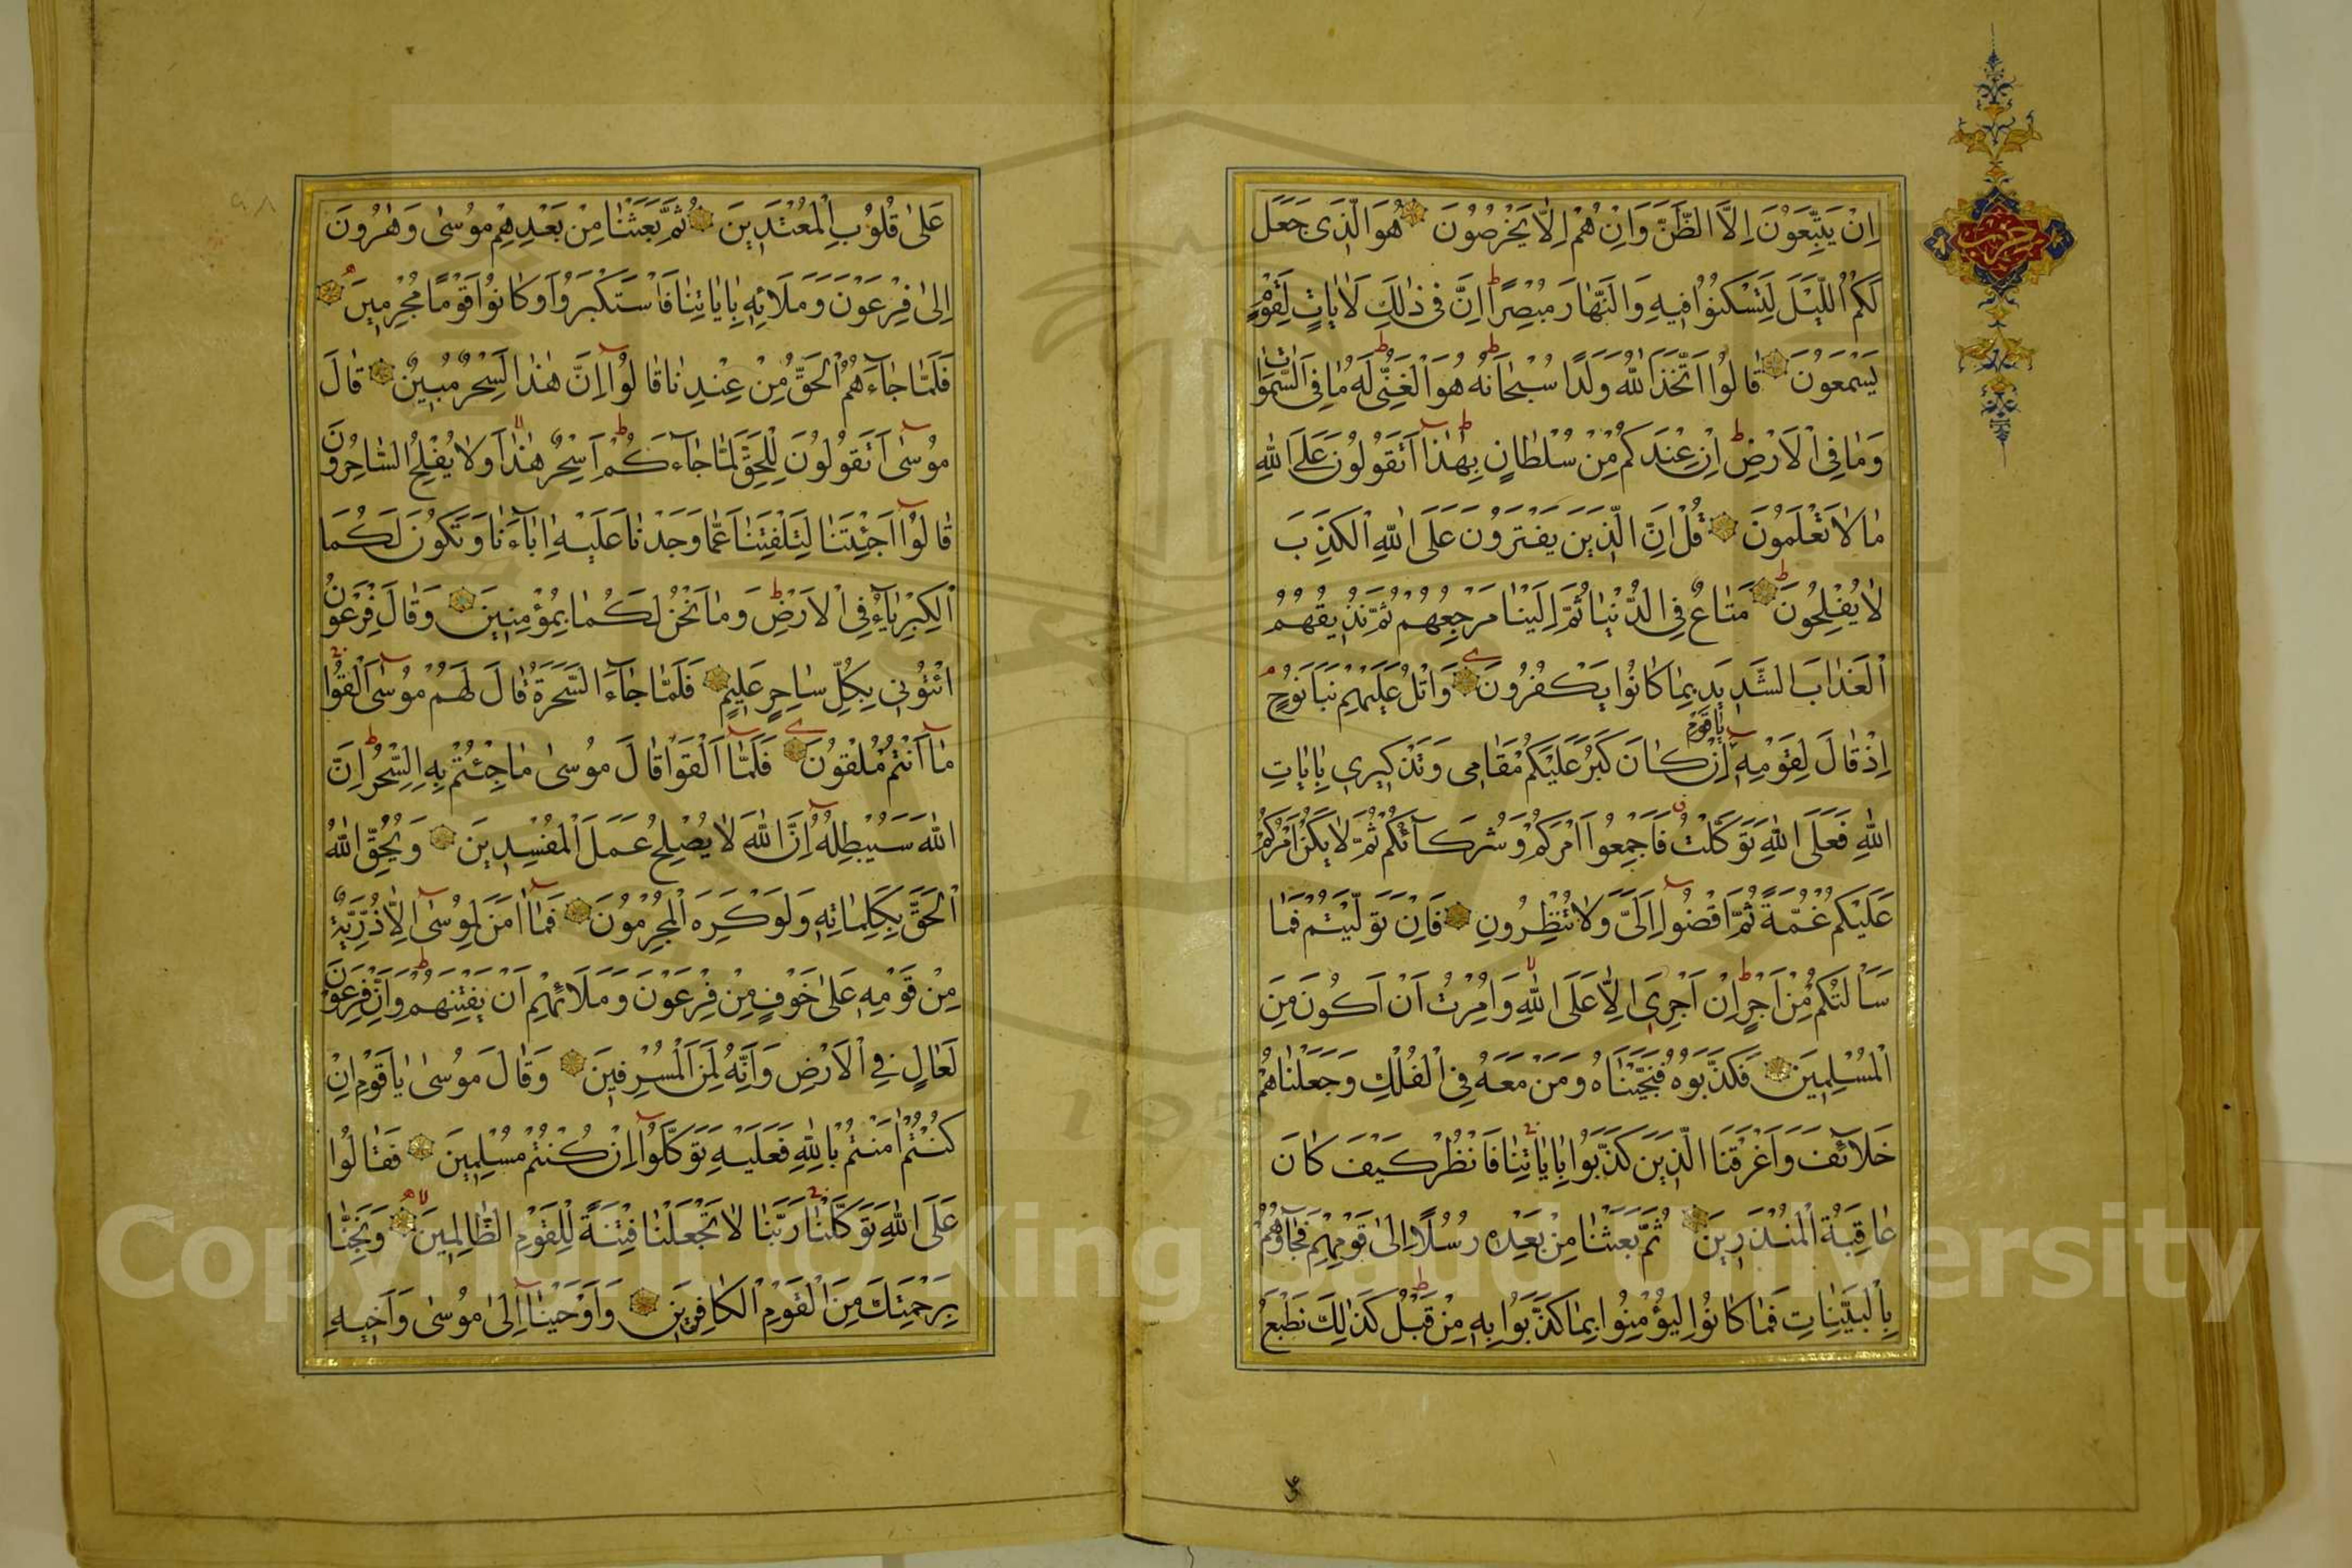 حزب
اِنْ يَتَّبِعُونَ اِلَّا الظَّنَّ وَاِنْ هُمْ اِلَّا يَخْرُصُونَ هُوَ الَّذِى جَعَلَ
لَكُمُ اللَّيْلَ لِتَسْكُنُوا فِيهِ وَالنَّهَارَ مُبْصِرًا ط اِنَّ فِى ذٰلِكَ لَاٰيَاتٍ لِقَوْمٍ
يَسْمَعُونَ قَالُوا اتَّخَذَ اللّٰهُ وَلَدًا سُبْحَانَهُ ط هُوَ الْغَنِىُّ ط لَهُ مَا فِى السَّمٰوَاتِ
وَمَا فِى الْاَرْضِ ط اِنْ عِنْدَكُمْ مِنْ سُلْطَانٍ بِهٰذَا ط اَتَقُولُونَ عَلَى اللّٰهِ
مَا لَا تَعْلَمُونَ قُلْ اِنَّ الَّذِينَ يَفْتَرُونَ عَلَى اللّٰهِ الْكَذِبَ
لَا يُفْلِحُونَ ط مَتَاعٌ فِى الدُّنْيَا ثُمَّ اِلَيْنَا مَرْجِعُهُمْ ثُمَّ نُذِيقُهُمُ
الْعَذَابَ الشَّدِيدَ بِمَا كَانُوا يَكْفُرُونَ وَاتْلُ عَلَيْهِمْ نَبَاَ نُوحٍ م
يَا قَوْمِ
اِذْ قَالَ لِقَوْمِهِ اِنْ كَانَ كَبُرَ عَلَيْكُمْ مَقَامِى وَتَذْكِيرِى بِاٰيَاتِ
اللّٰهِ فَعَلَى اللّٰهِ تَوَكَّلْتُ فَاَجْمِعُوا اَمْرَكُمْ وَشُرَكَآئَكُمْ ثُمَّ لَا يَكُنْ اَمْرُكُمْ
عَلَيْكُمْ غُمَّةً ثُمَّ اقْضُوا اِلَىَّ وَلَا تُنْظِرُونِ فَاِنْ تَوَلَّيْتُمْ فَمَا
سَاَلْتُكُمْ مِنْ اَجْرٍ ط اِنْ اَجْرِىَ اِلَّا عَلَى اللّٰهِ لا وَاُمِرْتُ اَنْ اَكُونَ مِنَ
الْمُسْلِمِينَ فَكَذَّبُوهُ فَنَجَّيْنَاهُ وَمَنْ مَعَهُ فِى الْفُلْكِ وَجَعَلْنَاهُمْ
خَلَآئِفَ وَاَغْرَقْنَا الَّذِينَ كَذَّبُوا بِاٰيَاتِنَا فَانْظُرْ كَيْفَ كَانَ
عَاقِبَةُ الْمُنْذَرِينَ ثُمَّ بَعَثْنَا مِنْ بَعْدِهِ رُسُلًا اِلَى قَوْمِهِمْ فَجَآؤُهُمْ
بِالْبَيِّنَاتِ فَمَا كَانُوا لِيُؤْمِنُوا بِمَا كَذَّبُوا بِهِ مِنْ قَبْلُ ط كَذٰلِكَ نَطْبَعُ
عَلٰى قُلُوبِ الْمُعْتَدِينَ ثُمَّ بَعَثْنَا مِنْ بَعْدِهِمْ مُوسٰى وَهٰرُونَ
اِلٰى فِرْعَوْنَ وَمَلَائِهِ بِاٰيَاتِنَا فَاسْتَكْبَرُوا وَكَانُوا قَوْمًا مُجْرِمِينَ
فَلَمَّا جَآءَهُمُ الْحَقُّ مِنْ عِنْدِنَا قَالُوا اِنَّ هٰذَا لَسِحْرٌ مُبِينٌ قَالَ
مُوسٰى اَتَقُولُونَ لِلْحَقِّ لَمَّا جَآءَكُمْ ط اَسِحْرٌ هٰذَا وَلَا يُفْلِحُ السَّاحِرُونَ
قَالُوا اَجِئْتَنَا لِتَلْفِتَنَا عَمَّا وَجَدْنَا عَلَيْهِ اٰبَآءَنَا وَتَكُونَ لَكُمَا
الْكِبْرِيَآءُ فِى الْاَرْضِ ط وَمَا نَحْنُ لَكُمَا بِمُؤْمِنِينَ وَقَالَ فِرْعَوْنُ
ائْتُونِى بِكُلِّ سَاحِرٍ عَلِيمٍ فَلَمَّا جَآءَ السَّحَرَةُ قَالَ لَهُمْ مُوسٰى اَلْقُوا
مَا اَنْتُمْ مُلْقُونَ فَلَمَّا اَلْقَوْا قَالَ مُوسٰى مَا جِئْتُمْ بِهِ السِّحْرُ ط اِنَّ
اللّٰهَ سَيُبْطِلُهُ اِنَّ اللّٰهَ لَا يُصْلِحُ عَمَلَ الْمُفْسِدِينَ وَيُحِقُّ اللّٰهُ
الْحَقَّ بِكَلِمَاتِهِ وَلَوْ كَرِهَ الْمُجْرِمُونَ فَمَا اٰمَنَ لِمُوسٰى اِلَّا ذُرِّيَّةٌ
مِنْ قَوْمِهِ عَلٰى خَوْفٍ مِنْ فِرْعَوْنَ وَمَلَائِهِمْ اَنْ يَفْتِنَهُمْ ط وَاِنَّ فِرْعَوْنَ
لَعَالٍ فِى الْاَرْضِ وَاِنَّهُ لَمِنَ الْمُسْرِفِينَ وَقَالَ مُوسٰى يَا قَوْمِ اِنْ
كُنْتُمْ اٰمَنْتُمْ بِاللّٰهِ فَعَلَيْهِ تَوَكَّلُوا اِنْ كُنْتُمْ مُسْلِمِينَ فَقَالُوا
عَلَى اللّٰهِ تَوَكَّلْنَا رَبَّنَا لَا تَجْعَلْنَا فِتْنَةً لِلْقَوْمِ الظَّالِمِينَ لا وَنَجِّنَا
بِرَحْمَتِكَ مِنَ الْقَوْمِ الْكَافِرِينَ وَاَوْحَيْنَا اِلٰى مُوسٰى وَاَخِيهِ
Copyright © King Saud University
195